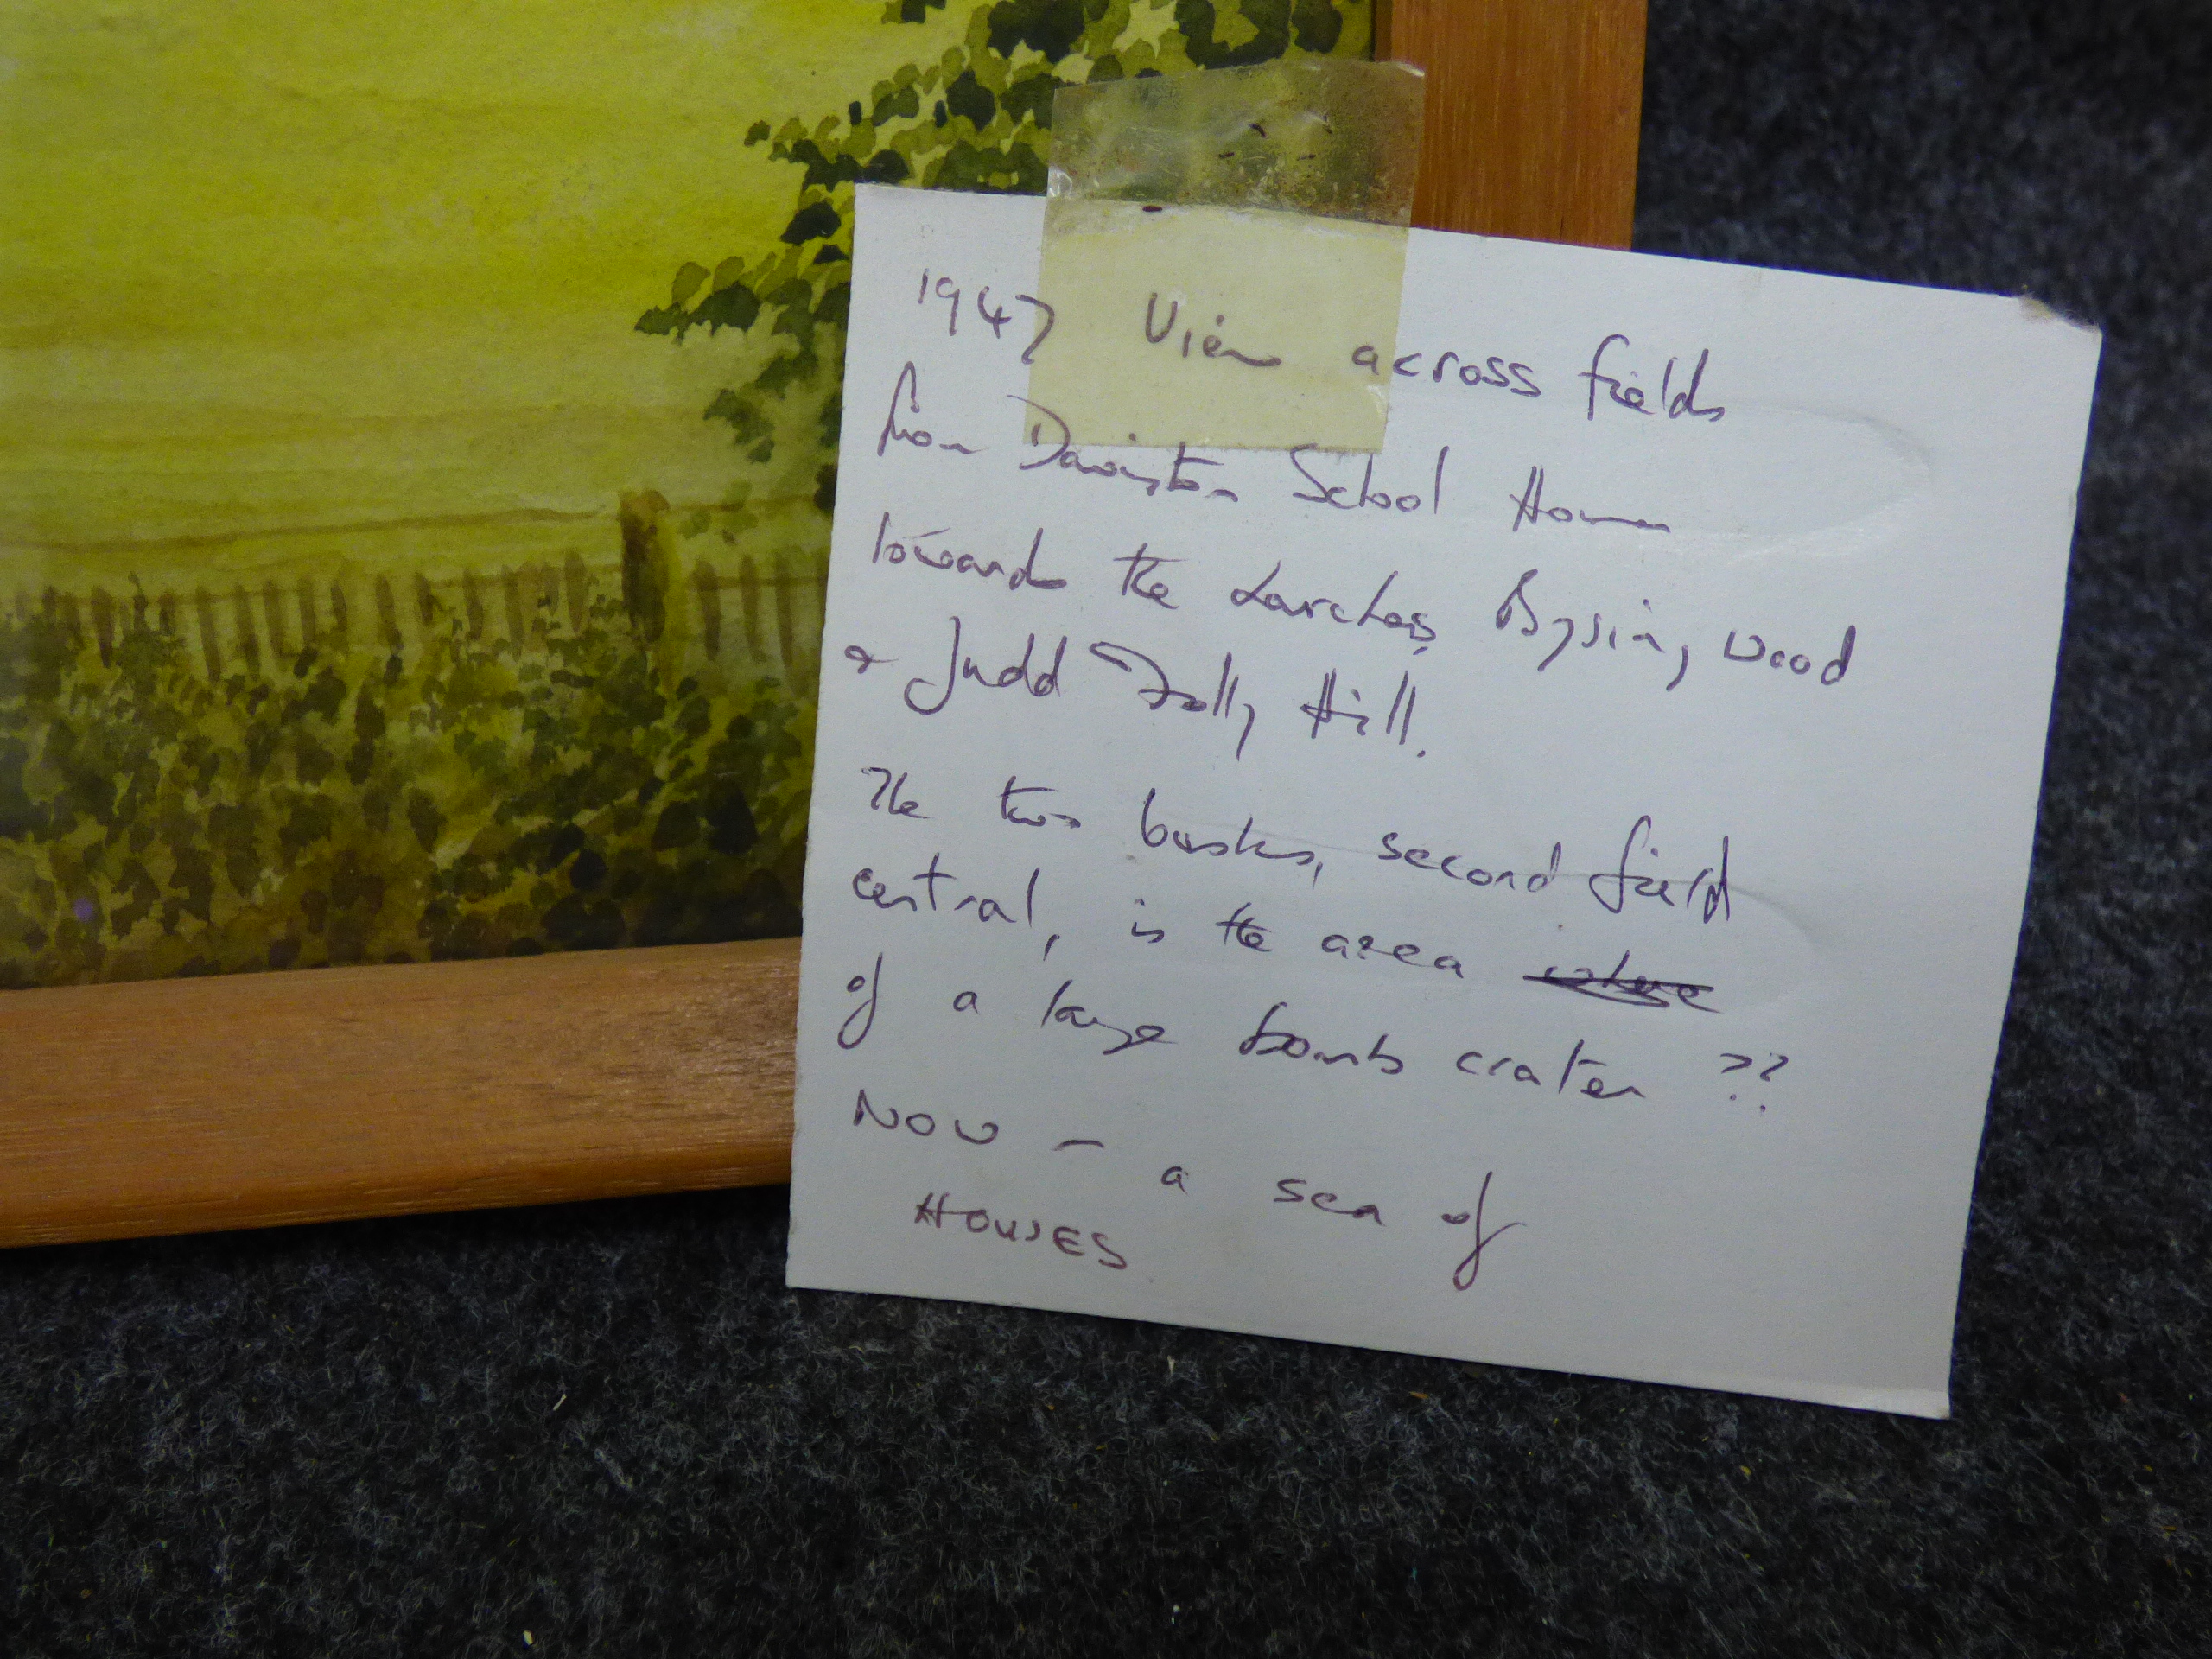 1947 View across fields
from Davington School House
towards the Larches, Bysing Wood
& Judd Folly Hill.
The two bushes, second field
central, is the area
of a large bomb crater ??
NOW - a sea of
HOUSES